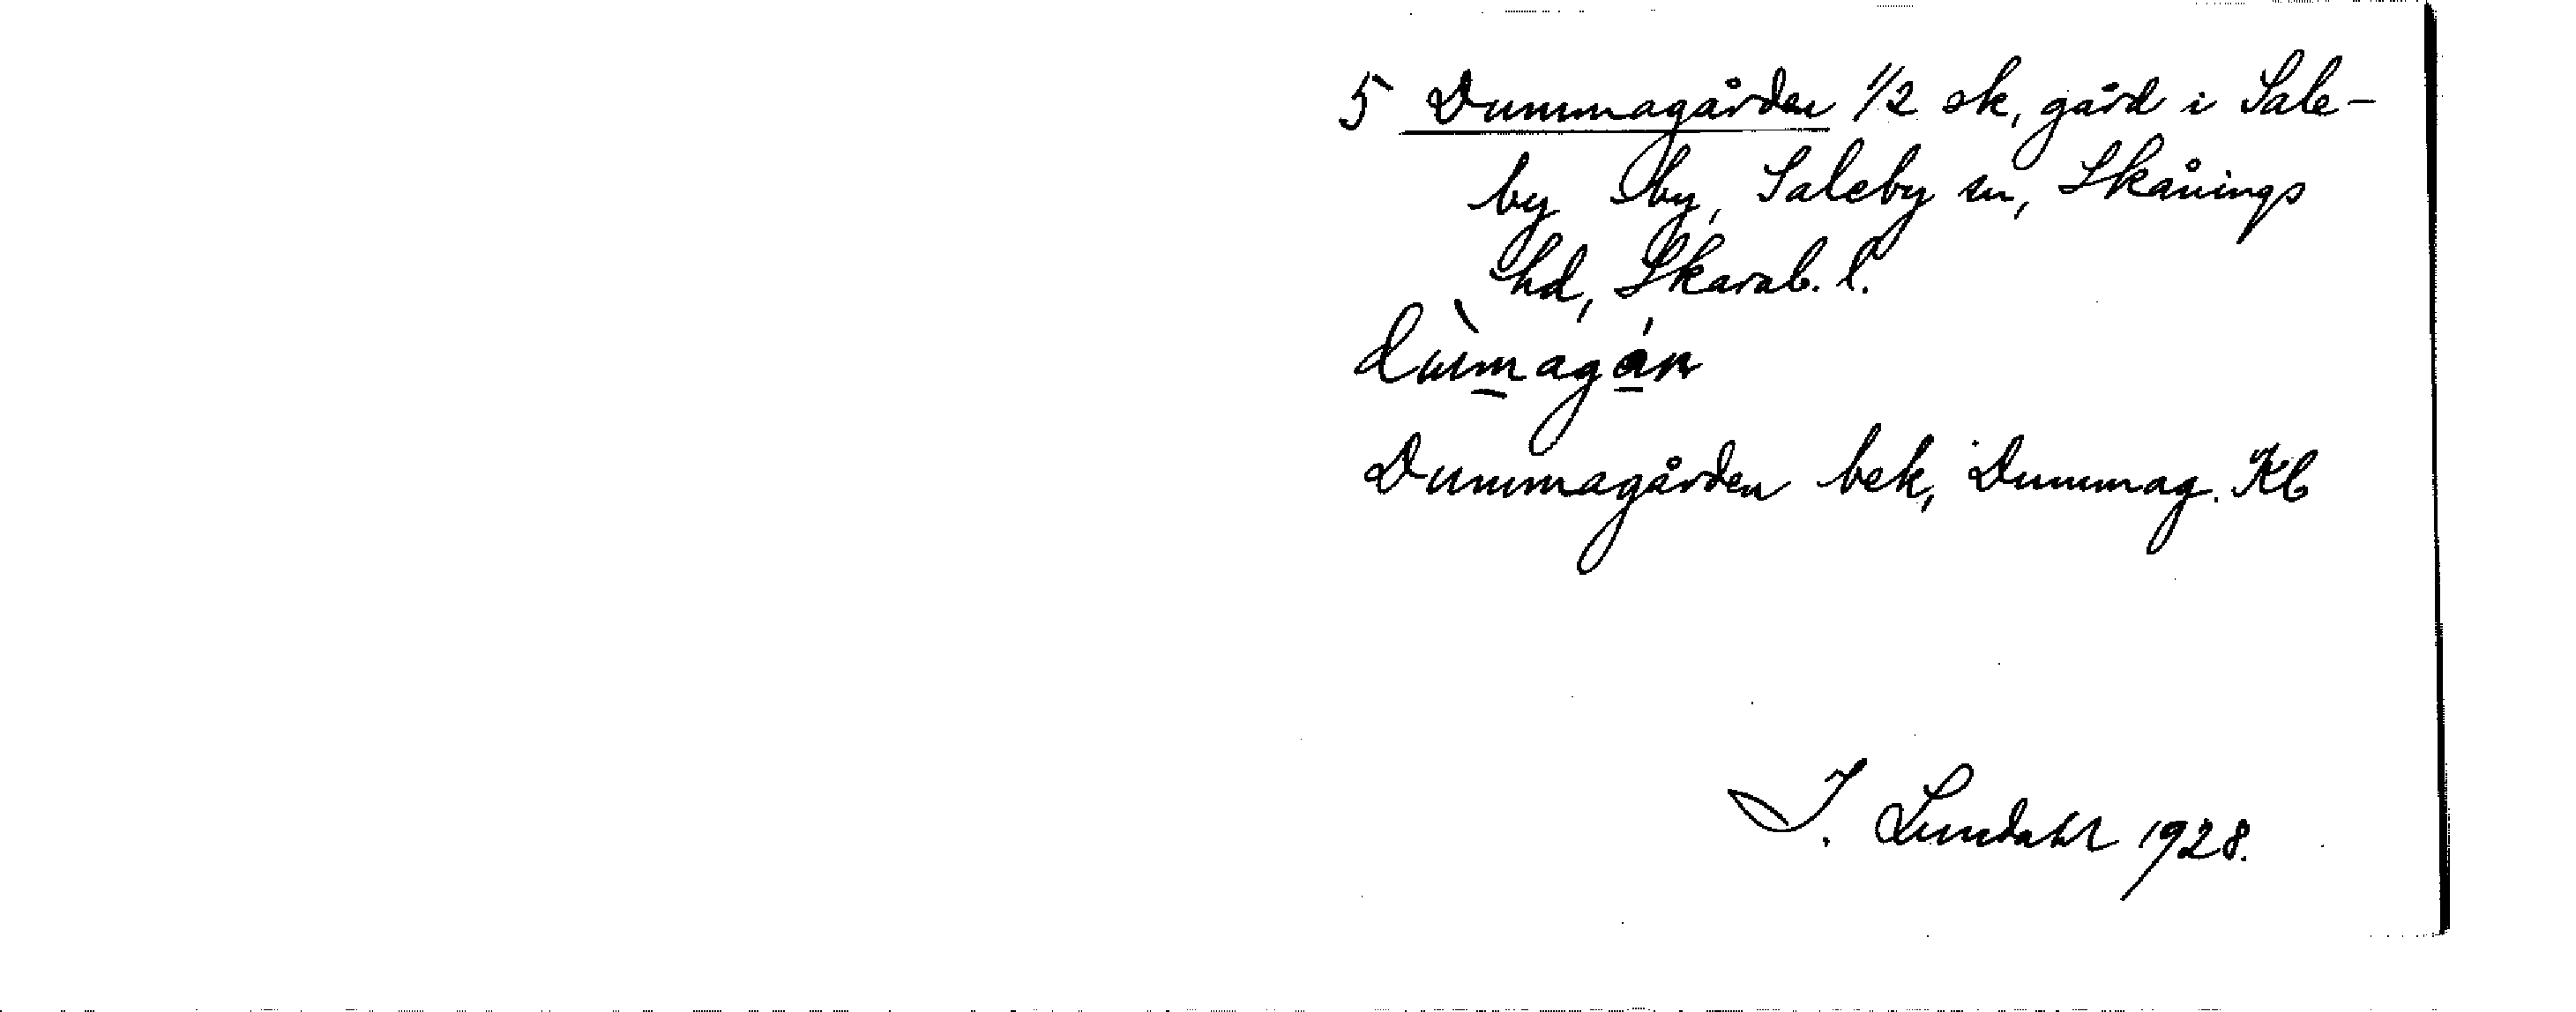 5 Dummagården 1/2 sk, gård i Sale-
by by, Saleby sn, Skånings
hd, Skarab. l.
dùmagán
Dummagården bek, Dummag. Kb
I. Lundahl 1928.